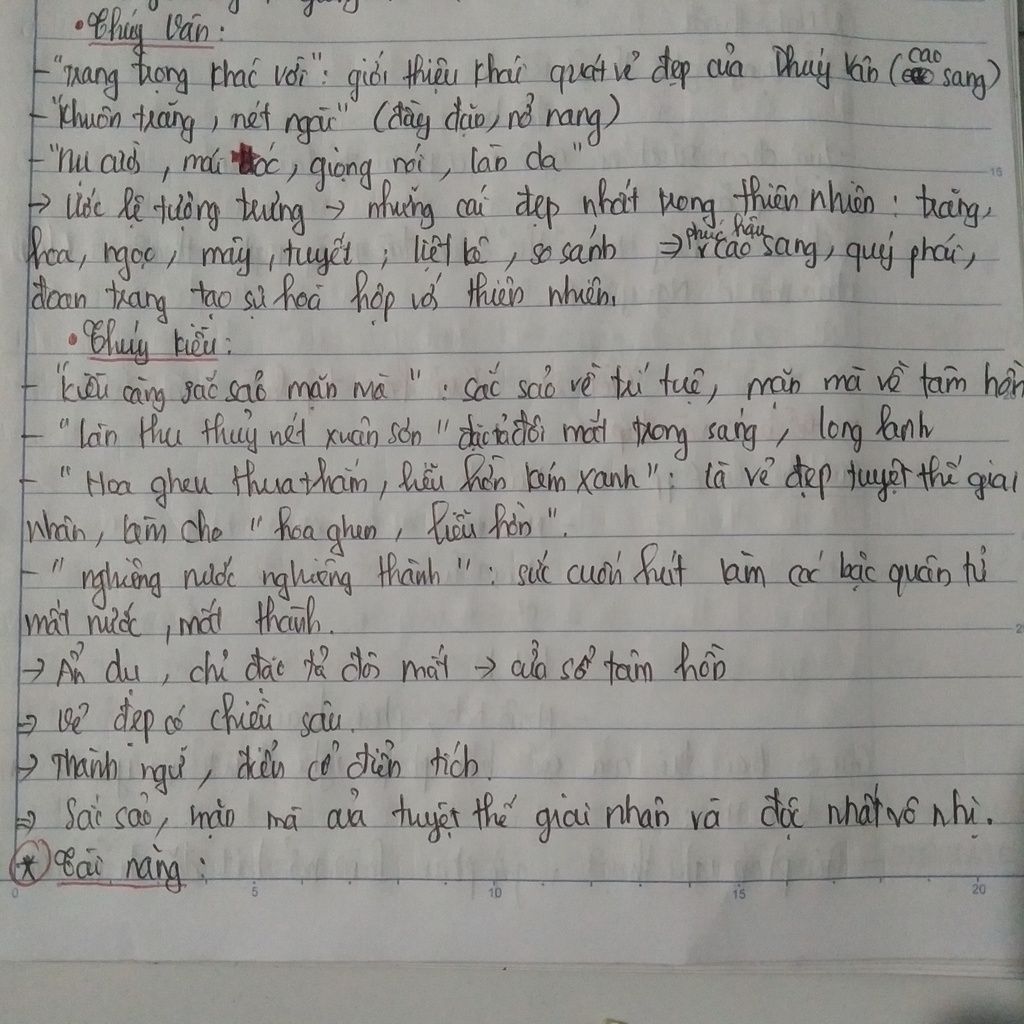 • Thúy Vân:
- "Trang trọng khác vời": giới thiệu khái quát vẻ đẹp của Thuý Vân (cao sang)
- "Khuôn trăng, nét ngài" (đầy đặn, nở nang)
- "nụ cười, mái tóc, giọng nói, làn da"
→ Ước lệ tượng trưng → những cái đẹp nhất trong thiên nhiên: trăng,
hoa, ngọc, mây, tuyết; liệt kê, so sánh ⇒ phúc hậu cao sang, quý phái,
đoan trang tạo sự hoà hợp với thiên nhiên.
• Thúy Kiều:
- "Kiều càng sắc sảo mặn mà": sắc sảo về trí tuệ, mặn mà về tâm hồn
- "Làn thu thuỷ nét xuân sơn" đặc tả đôi mắt trong sáng, long lanh
- "Hoa ghen thua thắm, liễu hờn kém xanh": là vẻ đẹp tuyệt thế giai
nhân, làm cho "hoa ghen, liễu hờn".
- "nghiêng nước nghiêng thành": sức cuốn hút làm các bậc quân tử
mất nước, mất thành.
→ Ẩn dụ, chỉ đặc tả đôi mắt → cửa sổ tâm hồn
⇒ vẻ đẹp có chiều sâu.
→ Thành ngữ, điển cố điển tích.
⇒ Sắc sảo, mặn mà của tuyệt thế giai nhân và độc nhất vô nhị.
* Tài năng:
5 10 15 20